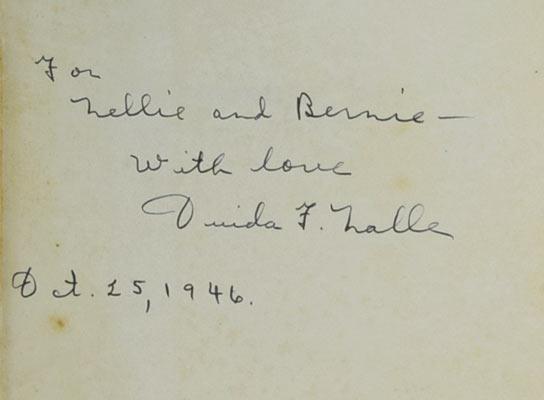 For
Nellie and Bernie —
With love
Ouida F. Nalle
Oct. 25, 1946.